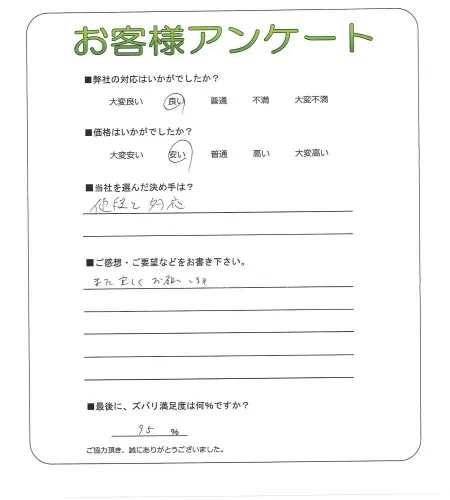 お客様アンケート
■弊社の対応はいかがでしたか?
大変良い 良い 普通 不満 大変不満
■価格はいかがでしたか?
大変安い 安い 普通 高い 大変高い
■当社を選んだ決め手は?
値段と対応
■ご感想・ご要望などをお書き下さい。
また宜しくお願いします
■最後に、ズバリ満足度は何%ですか?
95 %
ご協力頂き、誠にありがとうございました。